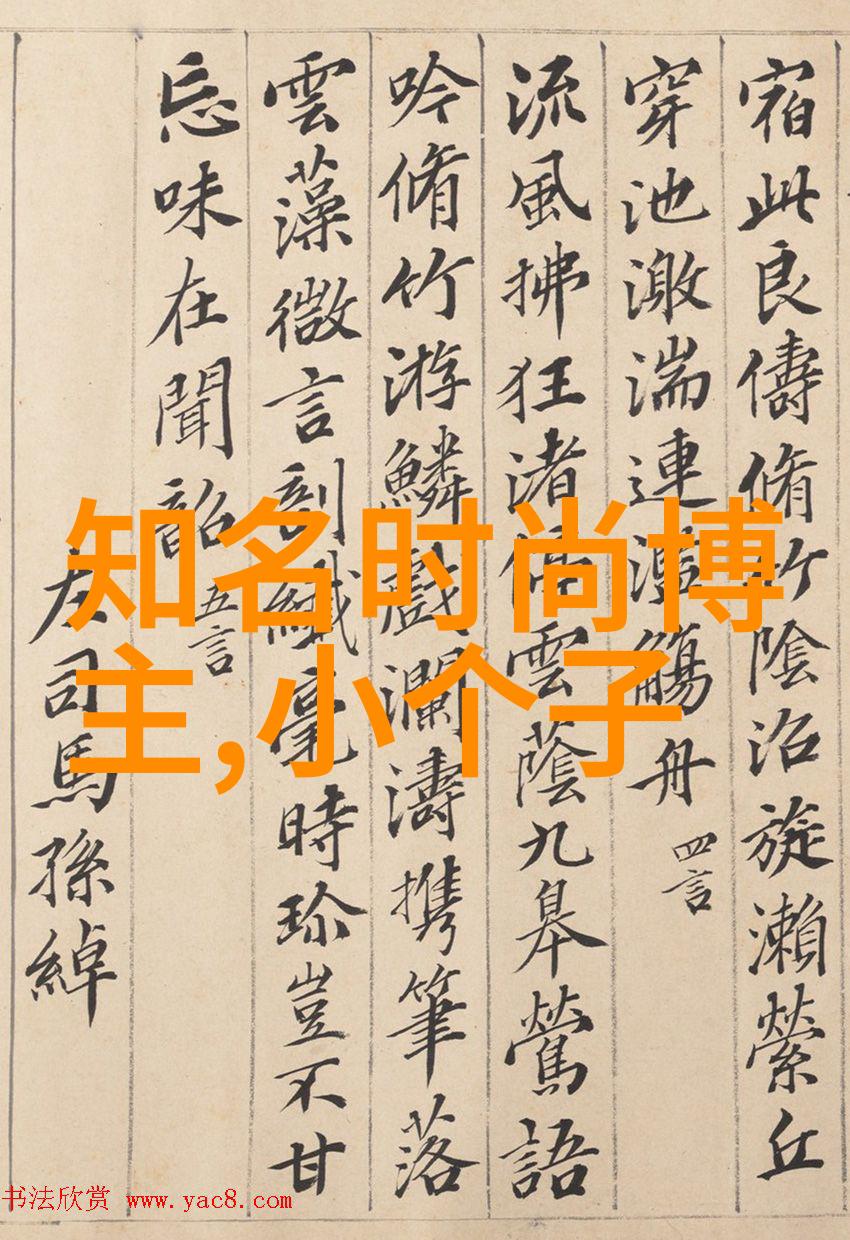 宿此良儔脩竹陰沼旋瀨縈丘
穿池激湍連濫觴舟
四言
流風拂狂渚停雲蔭九皋鶯語
吟脩竹游鱗戲瀾濤携筆落
雲藻微言剖纖毫時珍豈不甘
忘味在聞韶
五言
左司馬孫綽
知名时尚博
主,小个子
书法欣赏 www.yac8.com